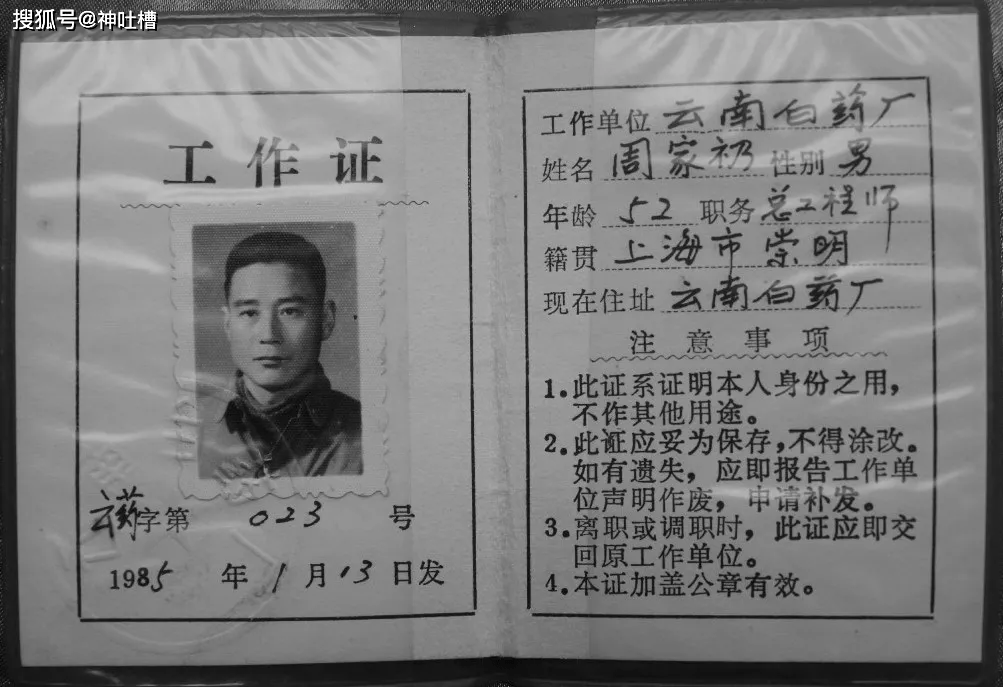 搜狐号@神吐槽
工作证
云药字第 023 号
1985年1月13日发
工作单位 云南白药厂
姓名 周家礽 性别 男
年龄 52 职务 总工程师
籍贯 上海市崇明
现在住址 云南白药厂
注意事项
1.此证系证明本人身份之用，
不作其他用途。
2.此证应妥为保存，不得涂改。
如有遗失，应即报告工作单
位声明作废，申请补发。
3.离职或调职时，此证应即交
回原工作单位。
4.本证加盖公章有效。